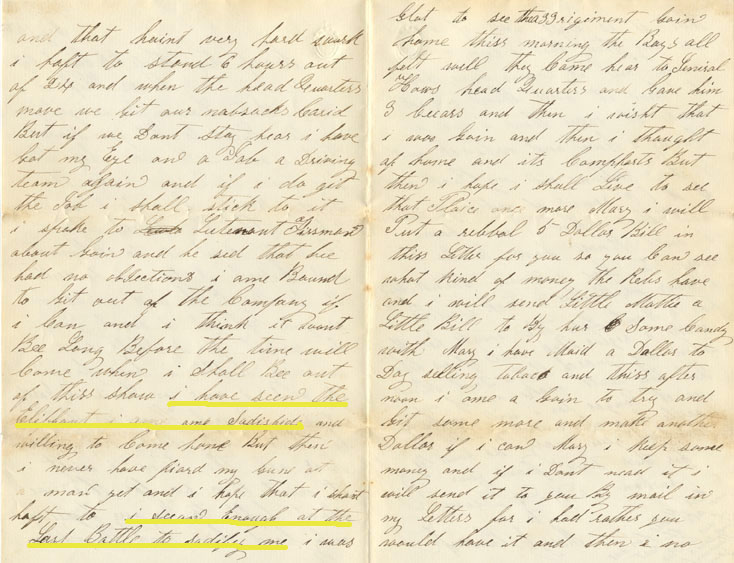 and that haint very hard work
i haft to stand 6 hours out
of 24 and when the head Quarters
move we git our nabsacks Carid
But if we Dont stay hear i have
Got my Eye on a Job a Driving
team again and if i do get
the Job i shall stick to it
i spoke to Lutenont
about Goin and he sed that hee
had no obections i ame Bound
to Git out of the Company if
i Can and i think it wont
Bee Long Before the time will
Come when i Shall Bee out
of thiss Show i have seen the
Eliphant i ame ame Sadisfide and
willing to Come home But then
i never have fiard my Gun at
a man yet and i hope that i shant
haft to i seean Enough at the
Last Battle to sadisfy me i was
Glat to see tha 33 rigiment Goin
home thiss morning the Boys all
felt well they Came hear to General
Hows head Quarters and Gave him
3 Cecars and then i wisht that
i was Goin and then i thought
of home and its Compforts But
then i hope i shall Live to see
that Plaice one more Mary i will
Put a rebbal 5 Dollar Bill in
thiss Letter for you so you Can see
what kind of money the Rebs have
and i will send Little Mattie a
Little Bill to By hur Some Candy
with Mary i have Maid a Dollar to
Day selling tobaco and thiss after
noon i ame a Goin to try and
Git some more and make another
Dollar if i can Mary i keep some
money and if i Dont nead it i
will send it to you By mail in
my Letters for i had rather you
would have it and then i no